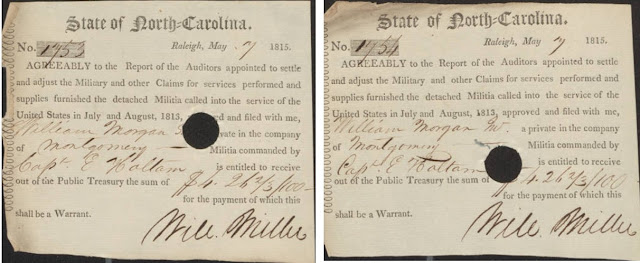 State of North-Carolina.
No. 1753 Raleigh, May 7 1815.
AGREEABLY to the Report of the Auditors appointed to settle
and adjust the Military and other Claims for services performed and
supplies furnished the detached Militia called into the service of the
United States in July and August, 1813, approved and filed with me,
William Morgan private in the company
of Montgomery Militia commanded by
Capt. E Haltam is entitled to receive
out of the Public Treasury the sum of $4.26 2/3/100
for the payment of which this
shall be a Warrant.
Will. Miller
State of North-Carolina.
No. 1754 Raleigh, May 7 1815.
AGREEABLY to the Report of the Auditors appointed to settle
and adjust the Military and other Claims for services performed and
supplies furnished the detached Militia called into the service of the
United States in July and August, 1813, approved and filed with me,
William Morgan a private in the company
of Montgomery Militia commanded by
Capt. E Haltam is entitled to receive
out of the Public Treasury the sum of $4.26 2/3/100
for the payment of which this
shall be a Warrant.
Will. Miller